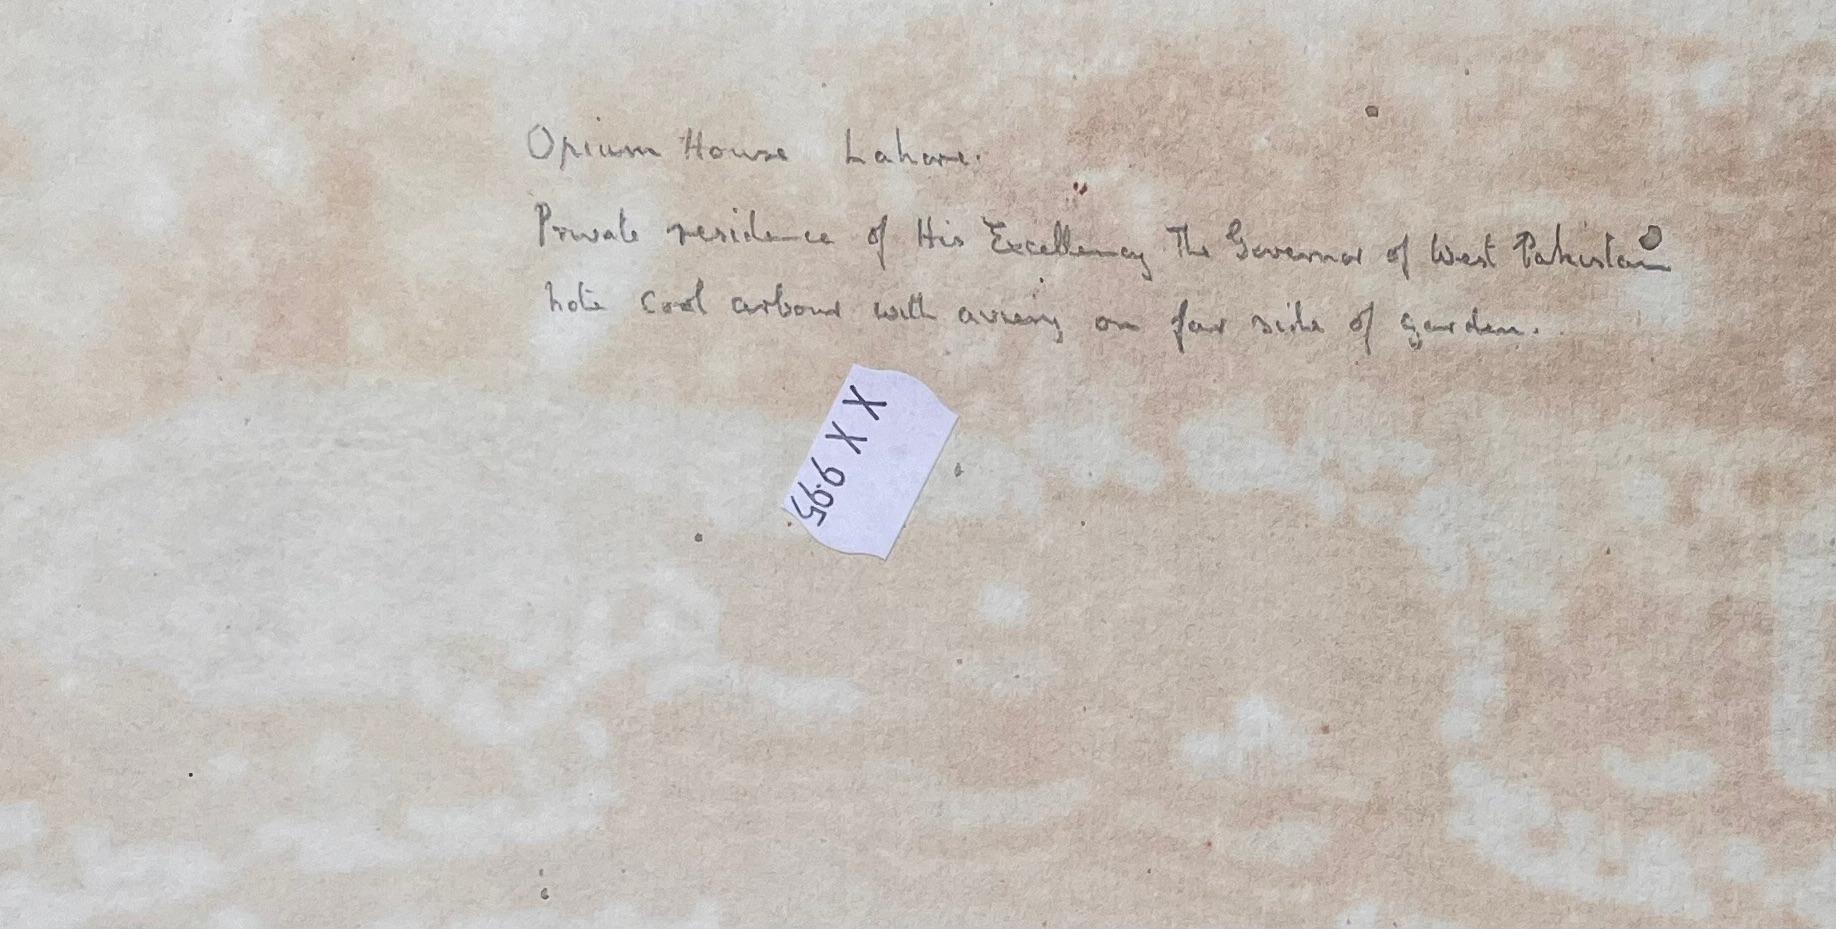 Opium House Lahore.
Private residence of His Excellency The Governor of West Pakistan
note cool arbour with aviary on far side of garden.
X X 9.95